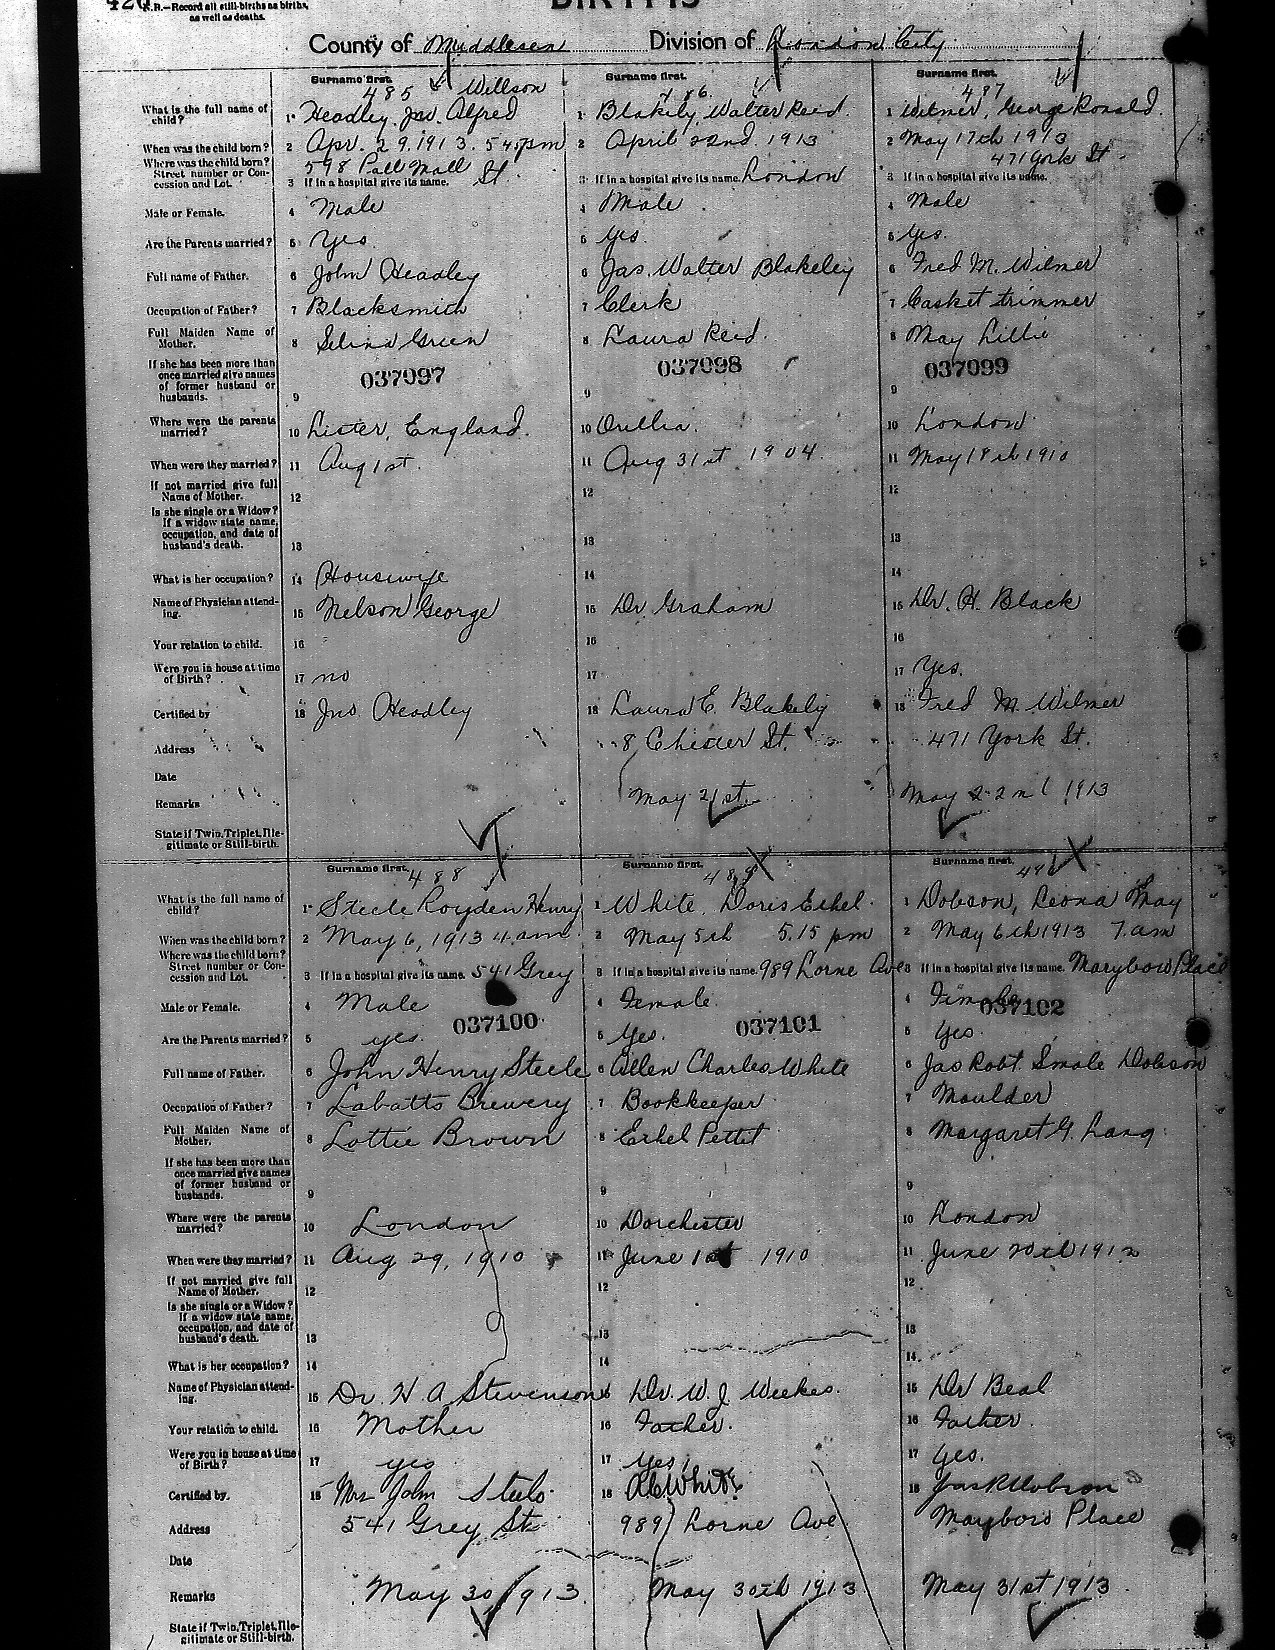 N.B.—Record all still-births as births,
as well as deaths.
BIRTHS
County of Middlesex Division of London City
Surname first. Surname first. Surname first.
485 Willson 486 487
What is the full name of child? 1 Headley, Jno. Alfred 1 Blakily, Walter Reid. 1 Wilmer, George Ronald.
When was the child born? 2 Apr. 29. 1913. 5 45 pm 2 April 22nd. 1913 2 May 17th 1913
598 Pall Mall St. 471 York St.
Where was the child born? Street number or Concession and Lot. 3 If in a hospital give its name. 3 If in a hospital give its name. London 3 If in a hospital give its name.
Male or Female. 4 Male 4 Male 4 Male
Are the Parents married? 5 Yes 5 Yes. 5 Yes.
Full name of Father. 6 John Headley 6 Jas. Walter Blakeley 6 Fred M. Wilmer
Occupation of Father? 7 Blacksmith 7 Clerk 7 Casket trimmer
Full Maiden Name of Mother. 8 Selina Green 8 Laura Reid. 8 May Lillie
037097 037098 037099
If she has been more than once married give names of former husband or husbands. 9 9 9
Where were the parents married? 10 Lister, England. 10 Orillia. 10 London
When were they married? 11 Aug 1st. 11 Aug 31st 1904. 11 May 18th 1910
If not married give full Name of Mother. 12 12 12
Is she single or a Widow? If a widow state name, occupation, and date of husband's death. 13 13 13
What is her occupation? 14 Housewife 14 14
Name of Physician attending. 15 Nelson George 15 Dr. Graham 15 Dr. H. Black
Your relation to child. 16 16 16
Were you in house at time of Birth? 17 no 17 17 Yes.
Certified by 18 Jno Headley 18 Laura E. Blakily 18 Fred M. Wilmer
Address 8 Chester St. 471 York St.
Date
Remarks May 21st. May 22nd 1913
State if Twin, Triplet, Illegitimate or Still-birth.
Surname first. Surname first. Surname first.
488 489 490
What is the full name of child? 1 Steele Royden Henry 1 White, Doris Ethel. 1 Dobson, Leona May
When was the child born? 2 May 6, 1913 4. am 2 May 5th 5.15 pm 2 May 6th 1913 7. am
Where was the child born? Street number or Concession and Lot. 3 If in a hospital give its name. 541 Grey 3 If in a hospital give its name. 989 Lorne Ave 3 If in a hospital give its name. Marybow Place
Male or Female. 4 Male 4 Female. 4 Female
037100 037101 037102
Are the Parents married? 5 yes. 5 Yes. 5 Yes
Full name of Father. 6 John Henry Steele 6 Allen Charles White 6 Jas Robt Smale Dobson
Occupation of Father? 7 Labatts Brewery 7 Bookkeeper 7 Moulder
Full Maiden Name of Mother. 8 Lottie Brown 8 Ethel Pettit 8 Margaret G. Lang
If she has been more than once married give names of former husband or husbands. 9 9 9
Where were the parents married? 10 London 10 Dorchester 10 London
When were they married? 11 Aug 29, 1910 11 June 1st 1910 11 June 20th 1912
If not married give full Name of Mother. 12 12
Is she single or a Widow? If a widow state name, occupation, and date of husband's death. 13 13 13
What is her occupation? 14 14 14
Name of Physician attending. 15 Dr. H A Stevenson Dr. W. J Weekes. 15 Dr Beal
Your relation to child. 16 Mother 16 Father. 16 Father.
Were you in house at time of Birth? 17 yes 17 Yes. 17 Yes.
Certified by. 18 Mrs John Steele 18 A C White 18 Jas R Dobson
Address 541 Grey St. 989 Lorne Ave Marybow Place
Date
Remarks May 30 1913. May 30th 1913 May 31st 1913
State if Twin, Triplet, Illegitimate or Still-birth.